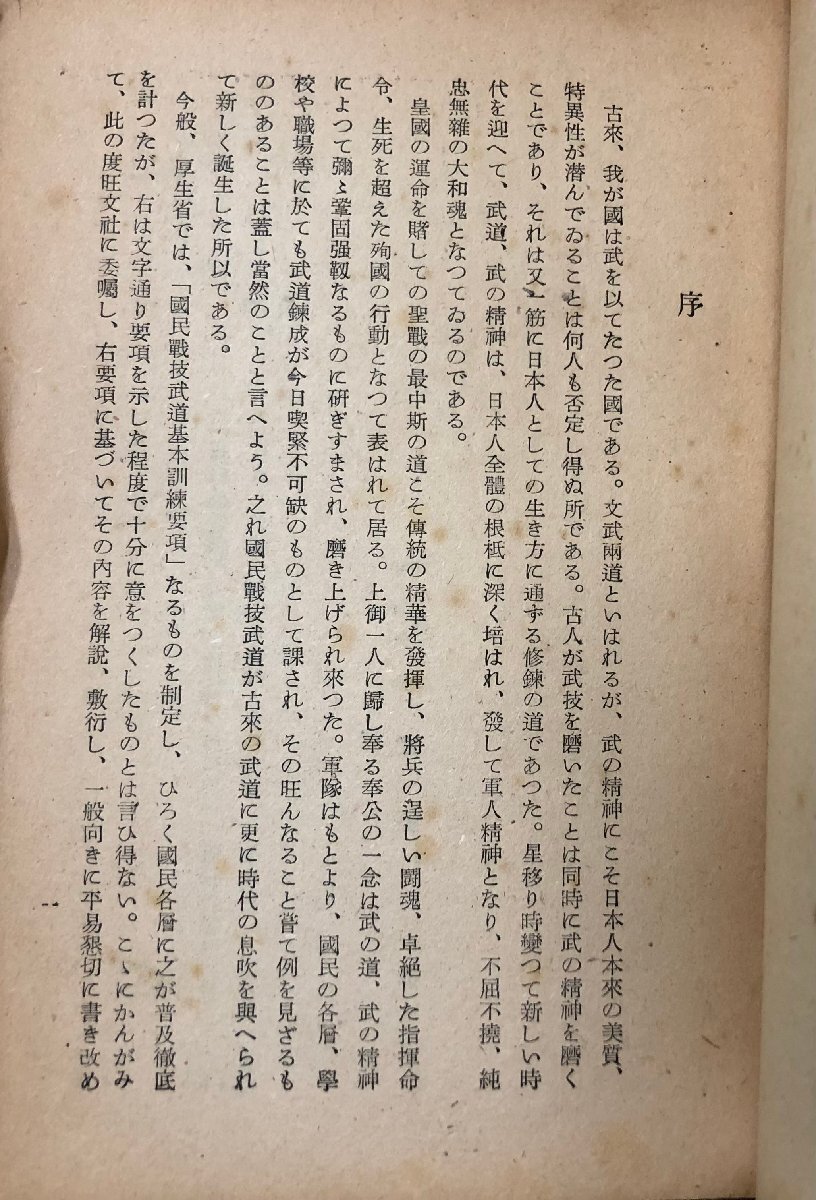 序
古來、我が國は武を以てたつた國である。文武兩道といはれるが、武の精神にこそ日本人本來の美質、
特異性が潜んでゐることは何人も否定し得ぬ所である。古人が武技を磨いたことは同時に武の精神を磨く
ことであり、それは又一筋に日本人としての生き方に通ずる修鍊の道であつた。星移り時變つて新しい時
代を迎へて、武道、武の精神は、日本人全體の根柢に深く培はれ、發して軍人精神となり、不屈不撓、純
忠無雜の大和魂となつてゐるのである。
皇國の運命を賭しての聖戰の最中斯の道こそ傳統の精華を發揮し、將兵の逞しい鬪魂、卓絕した指揮命
令、生死を超えた殉國の行動となつて表はれて居る。上御一人に歸し奉る奉公の一念は武の道、武の精神
によつて彌〻鞏固强靱なるものに硏ぎすまされ、磨き上げられ來つた。軍隊はもとより、國民の各層、學
校や職場等に於ても武道鍊成が今日喫緊不可缺のものとして課され、その旺んなること嘗て例を見ざるも
ののあることは蓋し當然のことと言へよう。之れ國民戰技武道が古來の武道に更に時代の息吹を與へられ
て新しく誕生した所以である。
今般、厚生省では、「國民戰技武道基本訓練要項」なるものを制定し、ひろく國民各層に之が普及徹底
を計つたが、右は文字通り要項を示した程度で十分に意をつくしたものとは言ひ得ない。こゝにかんがみ
て、此の度旺文社に委囑し、右要項に基づいてその內容を解說、敷衍し、一般向きに平易懇切に書き改め